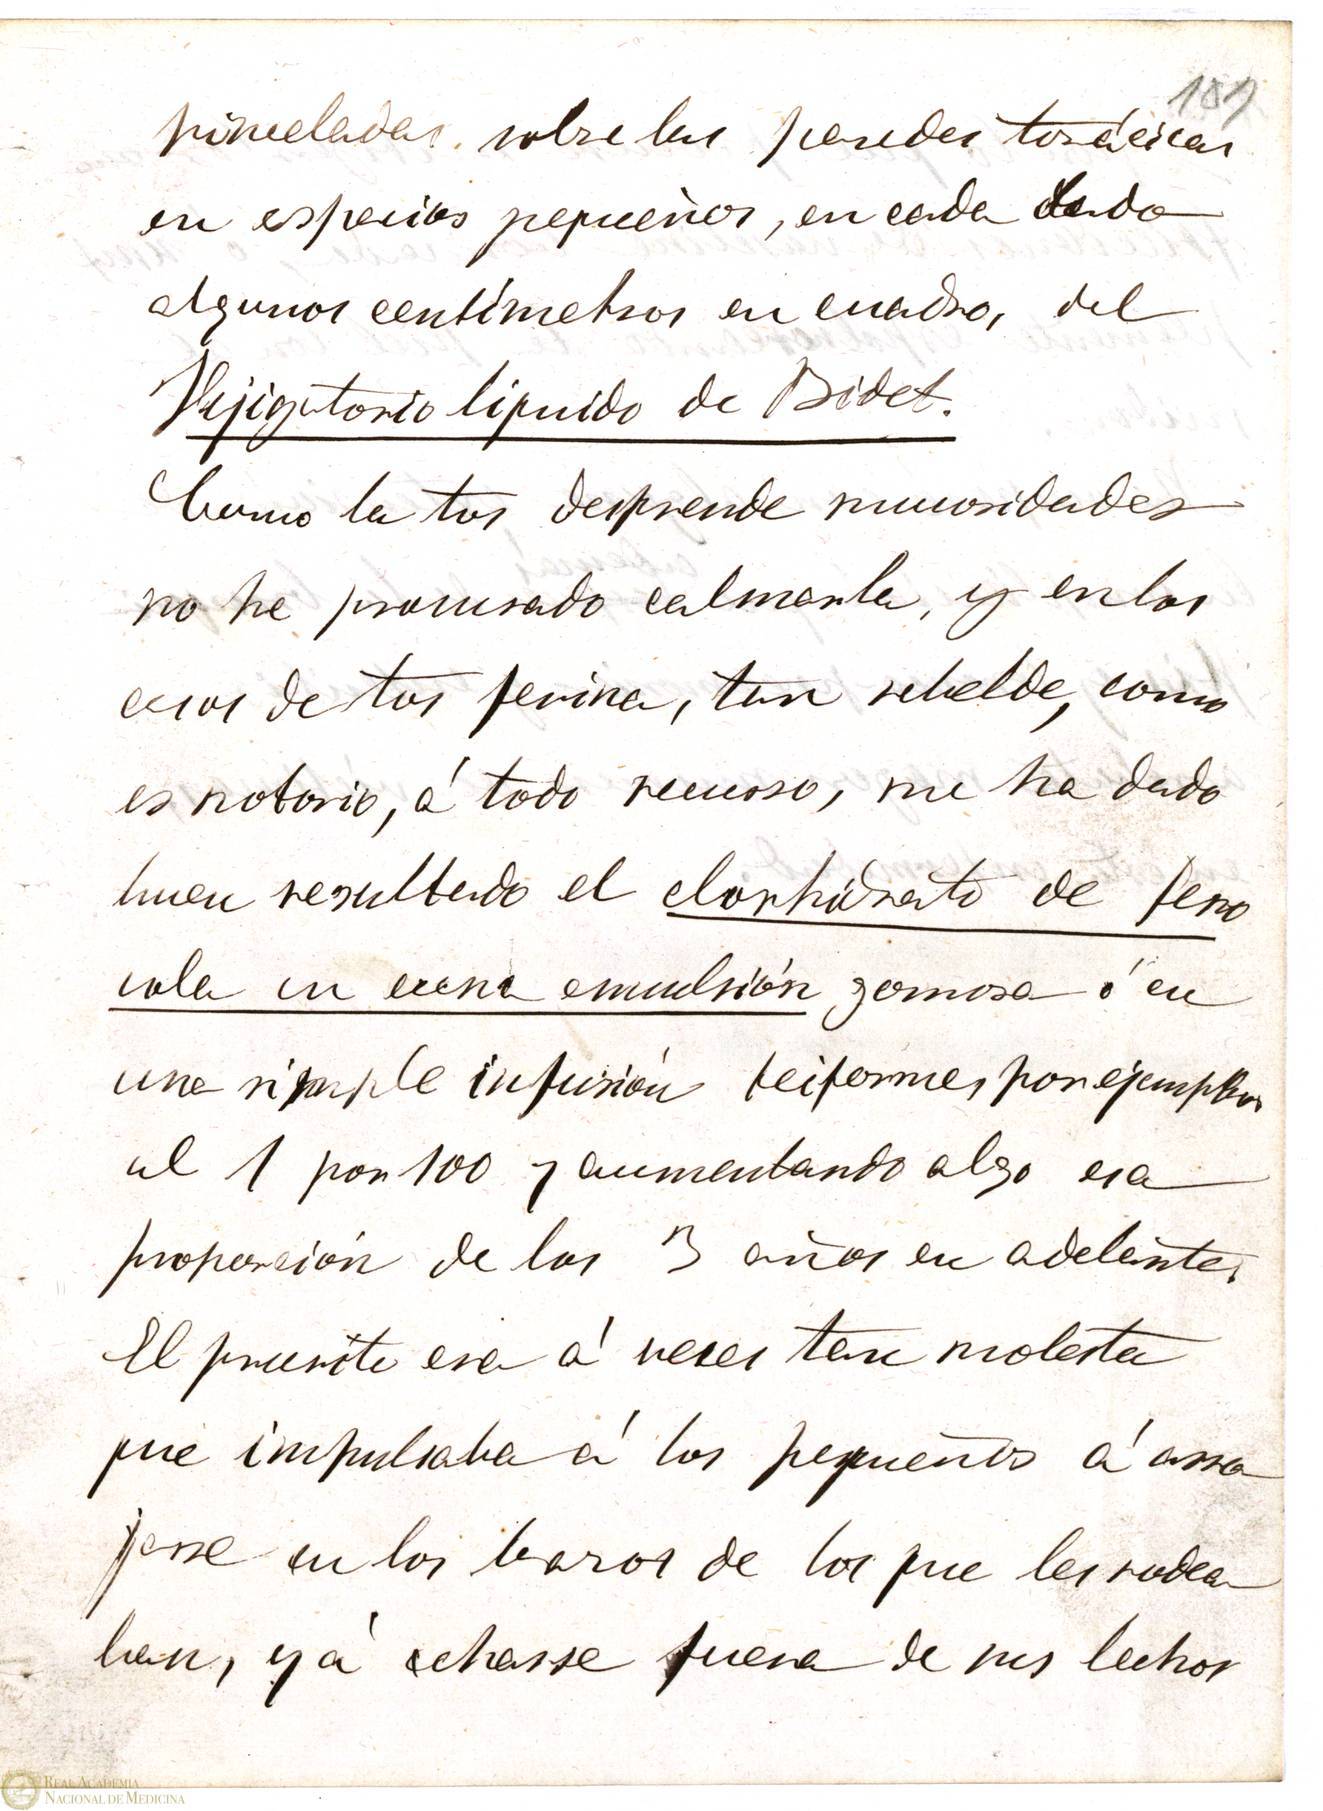 109
pinceladas sobre las paredes torácicas
en espacios pequeños, en cada lado
algunos centímetros en cuadro, del
Vejigatorio líquido de Bidet.
Como la tos desprende mucosidades
no he procurado calmarla, y en los
casos de tos ferina, tan rebelde, como
es notorio, á todo recurso, me ha dado
buen resultado el clorhidrato de feno
cola en una emulsión gomosa ó en
una simple infusión teiforme, por ejemplo,
al 1 por 100 y aumentando algo esa
proporción de los 3 años en adelante.
El prurito era á veces tan molesta
que impulsaba á los pequeños á arro
jarse en los brazos de los que les rodea
ban, y á echarse fuera de sus lechos
REAL ACADEMIA
NACIONAL DE MEDICINA